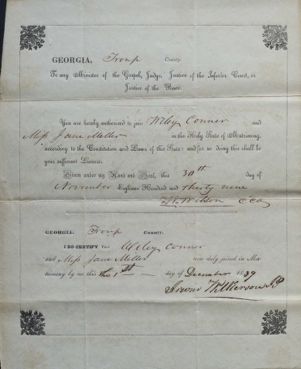 GEORGIA, Troup County
To any Minister of the Gospel, Judge, Justice of the Inferior Court, or
Justice of the Peace.
You are hereby authorized to join Wiley Conner and
Miss Jane Meller in the Holy State of Matrimony,
according to the Constitution and Laws of this State: and for so doing this shall be
your sufficient License.
Given under my Hand and Seal, this 30th day of
November Eighteen Hundred and thirty nine
Wilson c c o
GEORGIA. Troup County:
I DO CERTIFY that Wiley Conner
and Miss Jane Meller were duly joined in Ma
trimony by me this the 1st day of December 1839
Wilkerson J.P.